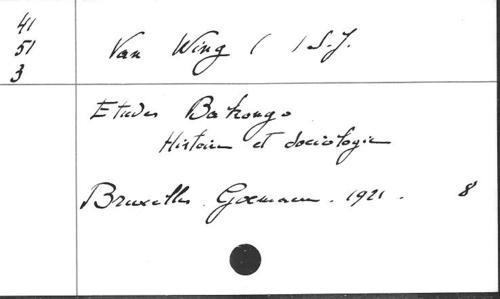 41
51
3
Van Wing ( ) S.J.
Etudes Bakongo
Histoire et sociologie
Bruxelles. Goemaere. 1921. 8